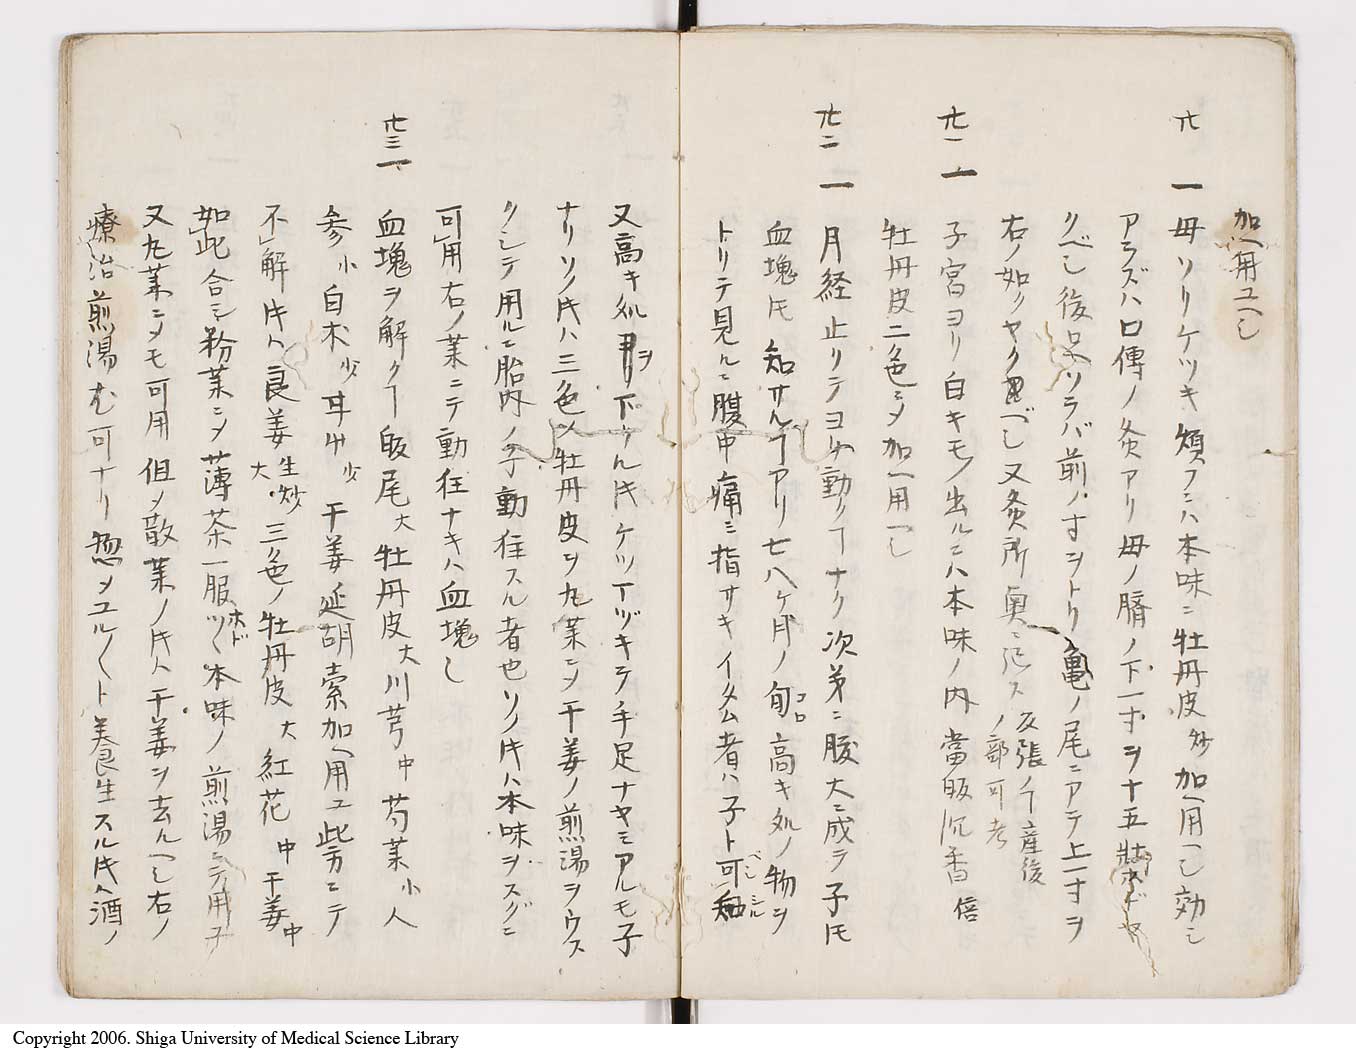 加ヘ用ユヘし
卅 一 母ソリケツキ煩フニハ本味ニ牡丹皮炒加ヘ用ヘし効し
アラズハ口傳ノ灸アリ母ノ臍ノ下一寸ヲ十五壮ホドヤ
クベし後ヘソラバ前ノ寸ヲトリ亀ノ尾ニアテ上一寸ヲ
右ノ如クヤクベし又灸所奥ニ記ス 反張ノ㕝産後ノ部可考
卅一 一 子宮ヨリ白キモノ出ルニハ本味ノ内當皈沉香倍
牡丹皮二色ニメ加ヘ用ヘし
卅二 一 月経止リテヨリ動クコナク次第ニ腹大ニ成テ子𪜈
血塊𪜈知サルコアリ七八ケ月ノ旬コロ高キ処ノ物ヲ
トリテ見ルニ腹中痛ミ指サキイタム者ハ子ト可知ベシシル
又高キ処ヨリヲ下ケル𪜈ケツイヅキテ手足ナヤミアルモ子
ナリソノ𪜈ハ三色メ牡丹皮ヲ丸薬ニメ干姜ノ煎湯ヲウス
クシテ用ルニ胎内ノ子動徃スル者也ソノ𪜈ハ本味ヲスグニ
可用右ノ薬ニテ動徃ナキハ血塊し
卅三 一 血塊ヲ解クコ皈尾大牡丹皮大川芎中芍薬小人
参小白朮少甘艸少干姜延胡索加ヘ用ユ此方ニテ
不解𪜈ハ良姜大生炒三色ノ牡丹皮大紅花中干姜中
如此合シ粉薬ニメ薄茶一服ツヽホド本味ノ煎湯ニテ用予
又丸薬ニメモ可用但メ散薬ノ𪜈ハ干姜ヲ去ルヘし右ノ
療治煎湯モ可ナリ惣メユルクト養生スル𪜈ハ酒ノ
Copyright 2006. Shiga University of Medical Science Library